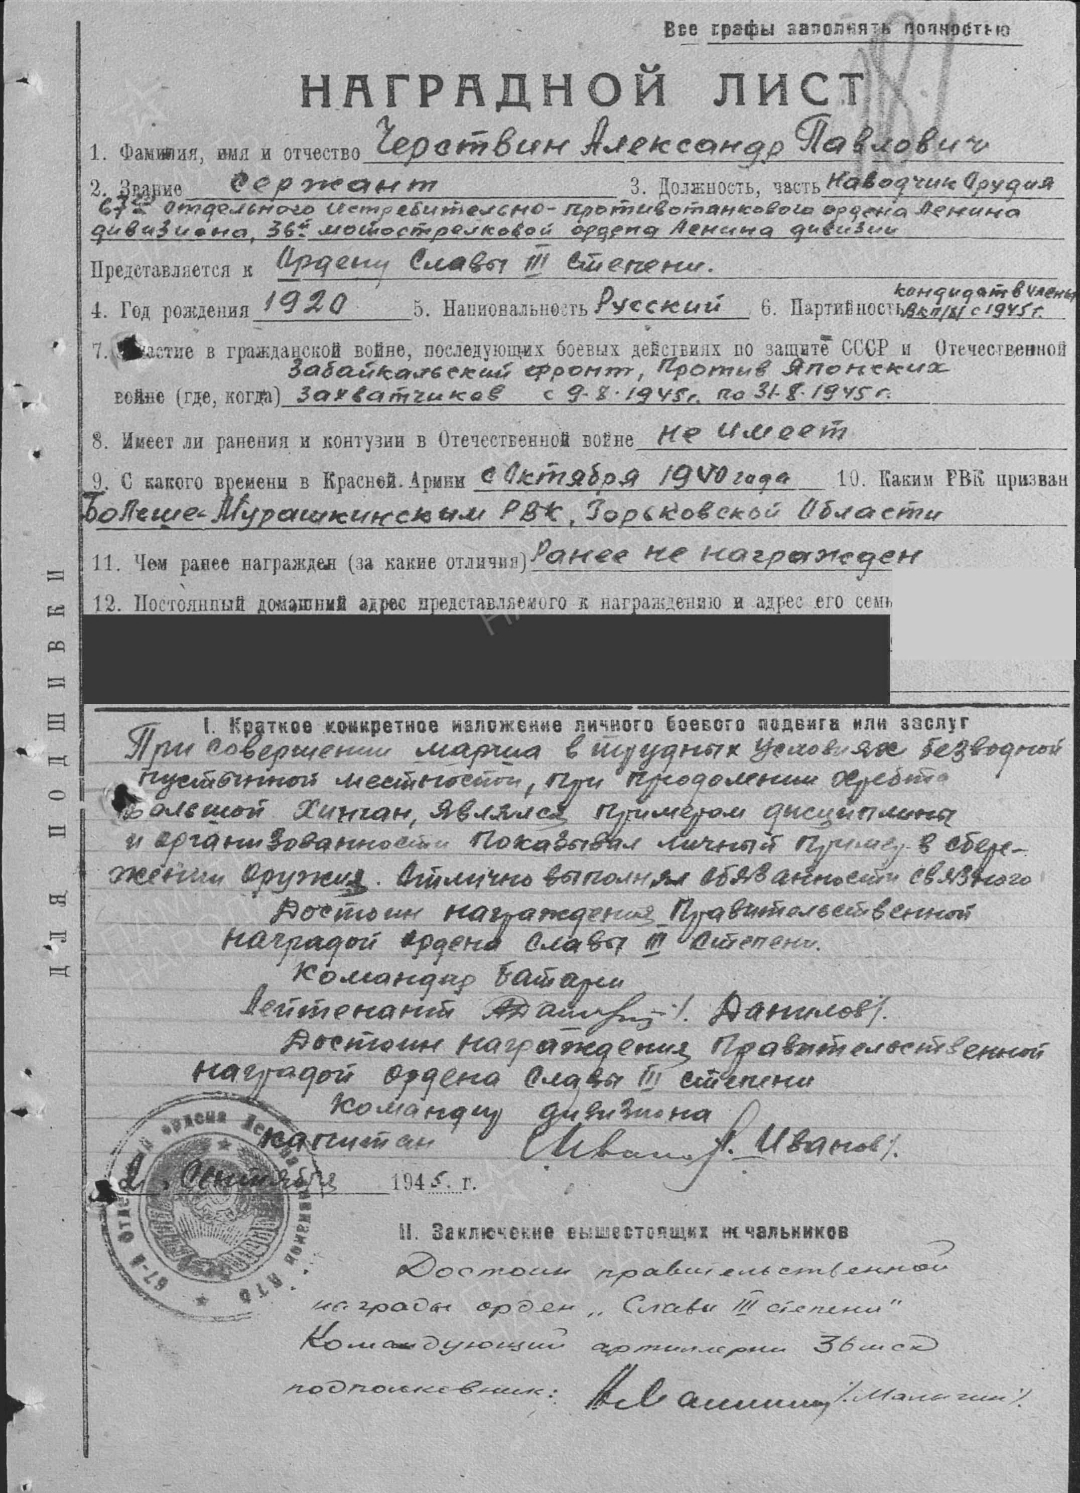 Все графы заполнять полностью
181
НАГРАДНОЙ ЛИСТ
1. Фамилия, имя и отчество Черствин Александр Павлович
2. Звание сержант 3. Должность, часть Наводчик Орудия
67го Отдельного Истребительно-противотанкового ордена Ленина
дивизиона, 36й мотострелковой ордена Ленина дивизии
Представляется к Ордену Славы III степени.
4. Год рождения 1920 5. Национальность Русский 6. Партийность кандидат в члены
ВКП/б/ с 1945 г.
7. Участие в гражданской войне, последующих боевых действиях по защите СССР и Отечественной
Забайкальский фронт, Против Японских
войне (где, когда) захватчиков с 9.8.1945г. по 31.8.1945г.
8. Имеет ли ранения и контузии в Отечественной войне не имеет
9. С какого времени в Красной Армии с Октября 1940 года 10. Каким РВК призван
Больше-Мурашкинским РВК, Горьковской Области
11. Чем ранее награжден (за какие отличия) Ранее не награжден
12. Постоянный домашний адрес представляемого к награждению и адрес его семь
ДЛЯ ПОДШИВКИ
I. Краткое конкретное изложение личного боевого подвига или заслуг
При совершении марша в трудных условиях безводной
пустынной местности, при продолении хребта
Большой Хинган, являлся примером дисциплины
и организованности показывал личный пример в сбере-
жении Оружия. Отлично выполнял обязанности связного
Достоин награждения Правительственной
наградой ордена Славы III степени.
Командир батареи
Лейтенант /Данилов/.
Достоин награждения Правительственной
наградой ордена Славы III степени
Командир дивизиона
капитан Иванов /Иванов/.
Сентября 1945 г.
67-й Отдельный ордена Ленина дивизион ПТО
II. Заключение вышестоящих начальников
Достоин правительственной
награды орден „Славы III степени"
Командующий артиллерии 36 мсд
подполковник: /Малыгин/.